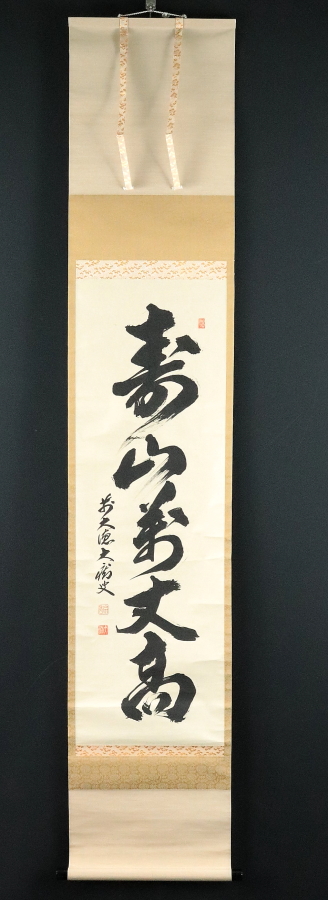 寿山萬丈高
前大徳大衛叟